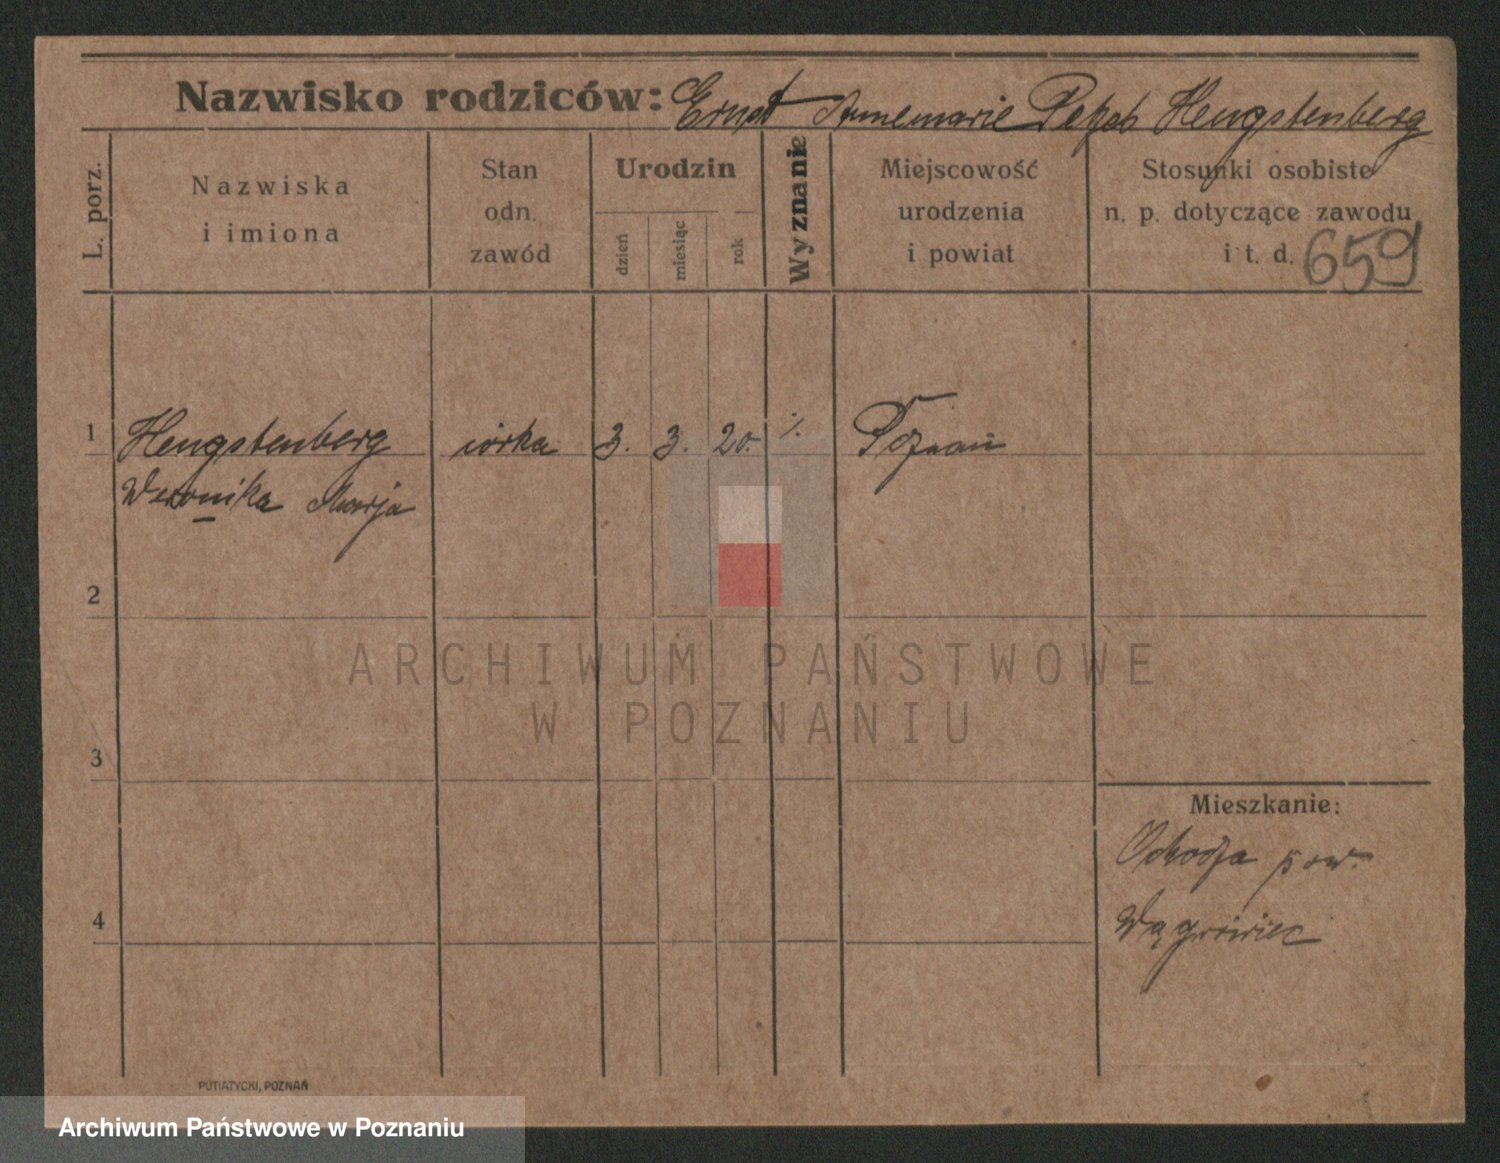 Nazwisko rodziców: Ernst Annemarie Hengstenberg
L. porz.
Nazwiska
i imiona
Stan
odn.
zawód
Urodzin
dzień
miesiąc
rok
Wyznanie
Miejscowość
urodzenia
i powiat
Stosunki osobiste
n. p. dotyczące zawodu
i t. d. 659
1 Hengstenberg córka 3. 3. 20. Poznań
Weronika Marja
2
3
4
Mieszkanie:
pow.
Wągrowiec
PUTIATYCKI, POZNAŃ
ARCHIWUM PAŃSTWOWE
W POZNANIU
Archiwum Państwowe w Poznaniu